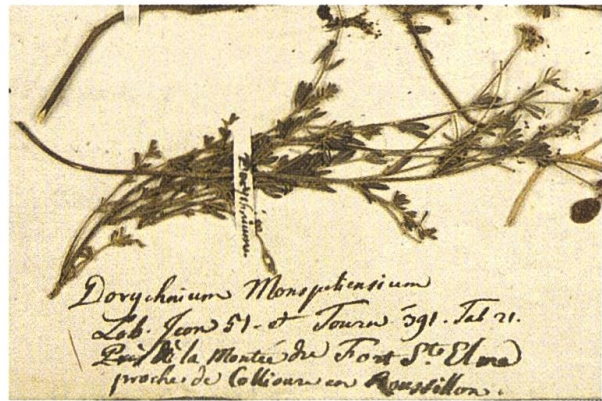 Dorychnium
Dorychnium Monspeliensium
Lob. Icon 51. et Tourn 391. Tab 21.
Pris à la montée du Fort Ste Elme
proche de Collioure en Roussillon.